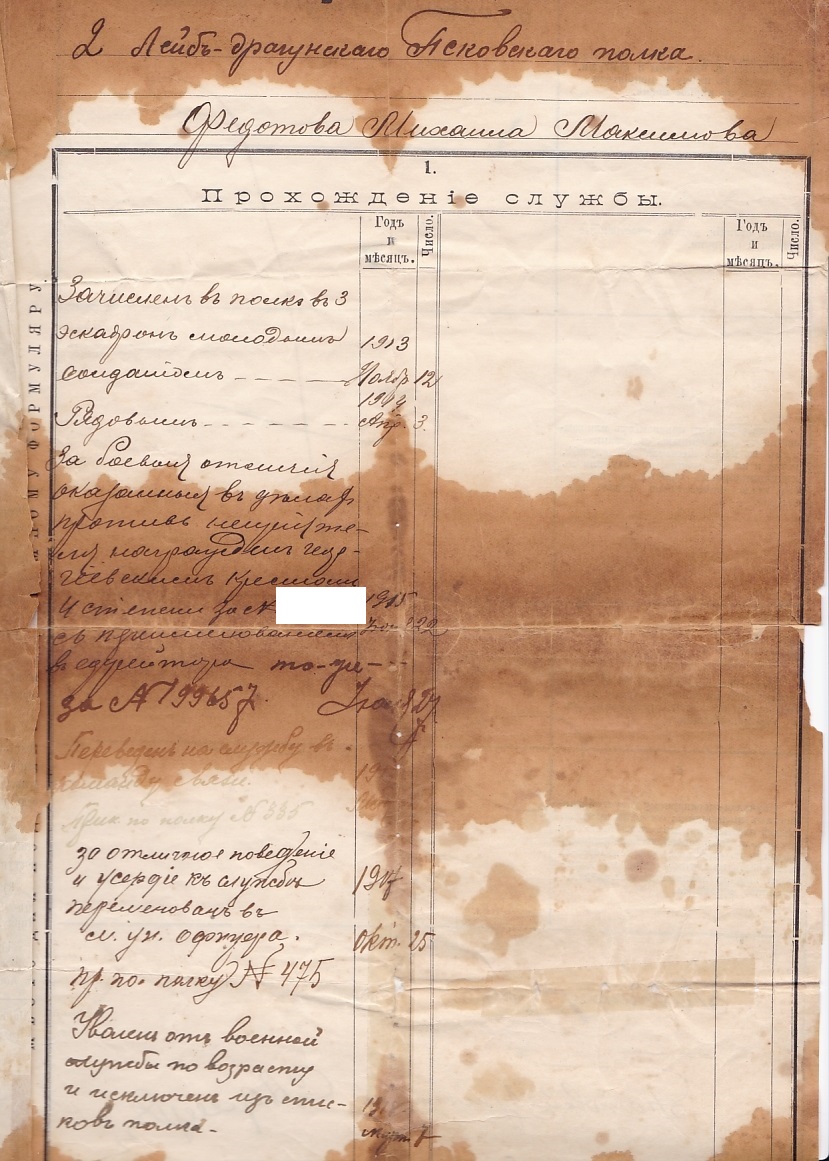 2 Лейбъ-драгунскаго Псковскаго полка.
Федотова Михаила Максимова
1.
Прохожденіе службы.
Годъ и мѣсяцъ.
Число.
Годъ и мѣсяцъ.
Число.
Зачисленъ въ полкъ въ 3
эскадронъ молодымъ 1913
солдатомъ Ноябр 12
1914
Рядовымъ Апр. 3.
За боевыя отличія
оказанныя въ дѣлах
противъ непріяте-
ля награжденъ геор-
гіевскимъ крестомъ
4 степени за 1915
съ переименованіемъ 22
въ ефрейтора
за № 99657.
Переведенъ на службу въ
команду связи.
Прик по полку № 335
за отличное поведеніе
и усердіе къ службѣ 1917
переменованъ въ
м. ун. офицера. Окт. 25
пр. по полку № 475
Уволенъ отъ военной
службы по возрасту
и исключенъ изъ спис-
ковъ полка.